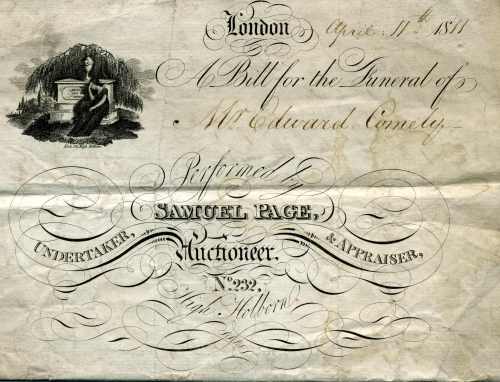 London April 11th 1811
A Bill for the Funeral of
Mr Edward Comely
Performed by
SAMUEL PAGE,
UNDERTAKER, Auctioneer, & APPRAISER,
No. 232,
High Holborn